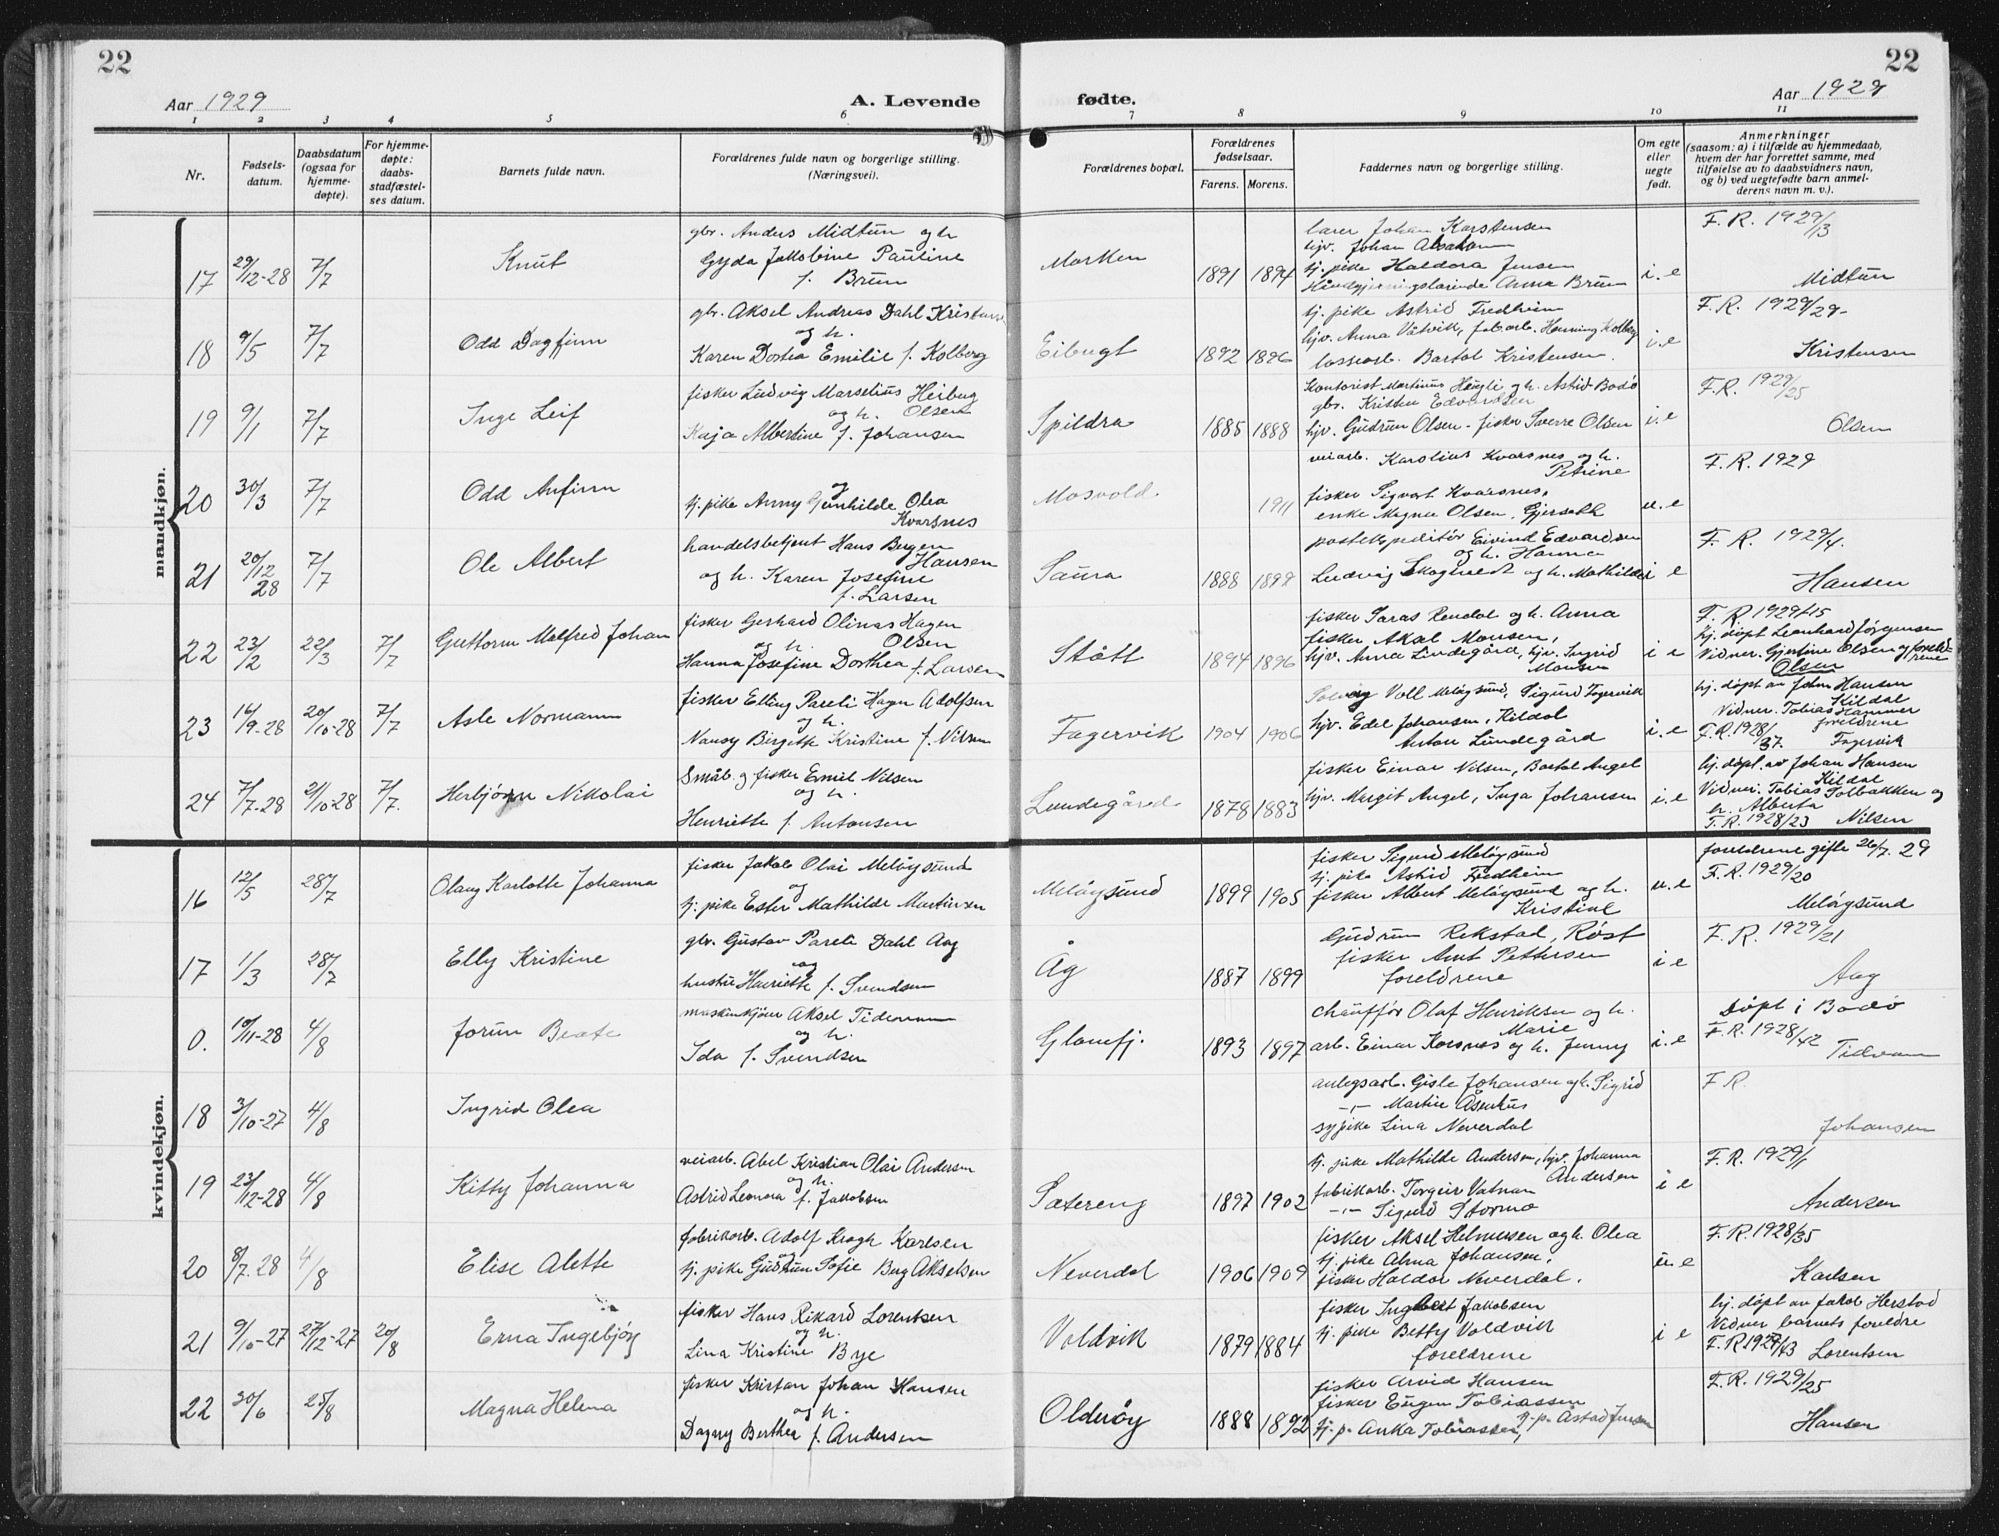 22
22
Aar 1929
A. Levende
fødte.
Aar 1929
1 2 3 4 5 6 7 8 9 10 11
Nr.
Fødsels-
datum.
Daabsdatum
(ogsaa for
hjemme-
døpte).
For hjemme-
døpte:
daabs-
stadfæstel-
ses datum.
Barnets fulde navn.
Forældrenes fulde navn og borgerlige stilling.
(Næringsvei).
Forældrenes bopæl.
Forældrenes
fødselsaar.
Farens. Morens.
Faddernes navn og borgerlige stilling.
Om egte
eller
uegte
født.
Anmerkninger
(saasom: a) i tilfælde av hjemmedaab,
hvem der har forrettet samme, med
tilføielse av to daabsvidners navn,
og b) ved uegtefødte barn anmel-
derens navn m. v.).
mandkjøn.
17 29/12-28 7/7 Knut
gbr. Anders Midtun og h
Gyda Jakobine Pauline
f. Brun
Marken 1891 1894
lærer Johan Karstensen
hjv. Johan Absalon
tj. pike Haldora Jensen
Håndgjerningslærinde Anna Brun
i. e
F. R. 1929/13
Midtun
18 9/5 7/7 Odd Dagfinn
gbr. Aksel Andreas Dahl Kristensen
og h.
Karen Dortea Emilie f. Kolberg
Eibugt 1892 1896
tj. pike Astrid Fredheim
hjv. Anna Våtvik, fabarb. Henning Kolberg
lossearb. Bartol Kristensen.
i. e
F. R. 1929/29-
Kristensen
19 9/1 7/7 Inge Leif
fisker Ludvig Marselius Heibug
og h. Olsen
Kaja Albertine f. Johansen
Spildra 1885 1888
Kontorist Martinus Heugli og h. Astrid Bodø
gbr. Kristen Edvardsen
hjv. Gudrun Olsen - fisker Sverre Olsen
i. e
F. R. 1929/25
Olsen
20 30/3 7/7 Odd Anfinn
og
tj. pike Anny Gunhilde Olea
Kvarsnes
Mosvold. 1911
veiarb. Karolius Kvarsnes og h.
Petrine
fisker Sigvart Kvarsnes,
enke Magna Olsen, Gjersvik
u. e
F. R. 1929
21 20/12 28 7/7 Ole Albert
handelsbetjent Hans Bergen
Hansen
og h. Karen Josefine
f. Larsen
Saura 1888 1899
postekspeditør Eivind Edvardsen
og h. Hanna
Ludvig Skogveldt og h. Mathilde
i e
F. R. 1929/4.
Hansen
22 23/2 22/3 7/7 Guttorm Malfred Johan
fisker Gerhard Olinas Hagen
og h. Olsen
Hanna Josefine Dorthea f. Larsen
Støtt 1894 1896
fisker Saras Rendal og h. Anna
fisker Aksel Monsen,
hjv. Anna Lundegård, hjv. Ingrid
Monsen
i e
F. R. 1929/15
hj. døpt Leonhard Jørgensen
Vidner. Gjertine Olsen og foreldrene
Olsen
23 16/9-28 20/10-28 7/7 Asle Normann
fisker Elling Pareli Hagen Adolfsen
og h.
Nancy Birgitte Kristine f. Nilsen
Fagervik 1904 1906
Solveig Voll Meløysund, Sigurd Fagervik
hjv. Edel Johansen, Kildal
Anton Lundegård
i. e
hj. døpt av John Hansen
Kildal
Vidner. Tobias Hammer
foreldrene
F. R. 1928/37. Fagervik
24 7/7-28 21/10-28 7/7. Herbjørn Nikolai
Småb. og fisker Emil Nilsen
og h.
Henriette f. Antonsen
Lundegård 1878 1883
fisker Einar Nilsen, Bartol Angel
hjv. Margit Angel, Inga Johansen
i. e
hj. døpt. av Johan Hansen
Kildal
Vidner. Tobias Tolbakken og
h. Alberta
F. R. 1928/23 Nilsen
kvindekjøn.
16 12/5 28/7 Olaug Karlotte Johanna
fisker Jakob Olai Meløysund
og
tj. pike Ester Mathilde Martinsen
Meløysund 1899 1905
fisker Sigurd Meløysund
tj. pike Astrid Fredheim
fisker Albert Meløysund og h.
Kristine
u. e
foreldrene gifte 26/7. 29
F. R. 1929/20
Meløysund
17 1/3 28/7 Elly Kristine
gbr. Gustav Pareli Dahl Aag
og
hustru Henriette f. Svendsen
Åg 1887 1899
Gudrun Rekstad, Røst
fisker Arnt Pettersen
foreldrene
i e
F. R. 1929/21
Aag
0. 19/11-28 4/8 Jorun Beate
maskinkjører Aksel Tidemann
og h.
Ida f. Svendsen
Glomfj. 1893 1897
chauffør Olaf Henriksen og h.
Marie
arb. Einar Korsnes og h. Jenny
i. e
Døpt i Bodø
F. R. 1928/42
18 3/10-27 4/8 Ingrid Olea
anlegsarb. Gisle Johansen og h. Sigrid
-,- Martin Åsenhus
sypike Lina Neverdal
F. R.
Johansen
19 23/12-28 4/8 Kitty Johanna
veiarb. Abel Kristian Olai Andersen
og h.
Astrid Leonora f. Jakobsen
Sætereng 1897 1902
tj. pike Mathilde Andersen, hjv. Johanna
Andersen
fabrikarb. Torgeir Vatnan
-,- Sigurd Stormo
i e
F. R. 1929/1
Andersen
20 8/7-28 4/8 Elise Alette
fabrikarb. Adolf Krogh Karlsen
og
tj. pike Gudrun Sofie Berg Akselsen
Neverdal 1906 1909
fisker Aksel Helmersen og h. Olea
tj. pike Alma Johansen,
fisker Haldor Neverdal.
u. e
F. R. 1928/35
Karlsen
21 9/10-27 27/12-27 20/8 Erna Ingebjørg
fisker Hans Rikard Lorentsen
og h.
Lina Kristine Bye
Voldvik 1879 1884
fisker Ingbert Jakobsen
tj. pike Betty Voldvik
foreldrene
i e
hj. døpt av Jakob Herstad
Vidner barnets foreldre
F. R. 1927/43 Lorentsen
22 30/6 25/8 Magna Helena
fisker Kristan Johan Hansen
og h.
Dagny Berthea f. Andersen
Olderøy 1888 1892
fisker Arvid Hansen
fisker Eugen Tobiassen
tj. p. Anka Tobiassen, tj. p. Åstad Jensen
F. R. 1929/25
Hansen